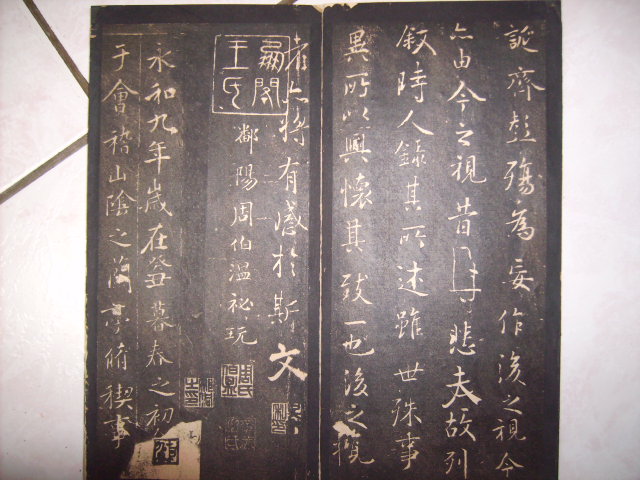 誕齊彭殤為妄作後之視今
亦由今之視昔悲夫故列
叙時人錄其所述雖世殊事
異所以興懷其致一也後之攬
者亦將有感於斯文
王氏
鄱陽周伯溫祕玩
永和九年歲在癸丑暮春之初
于會稽山陰之蘭亭脩稧事